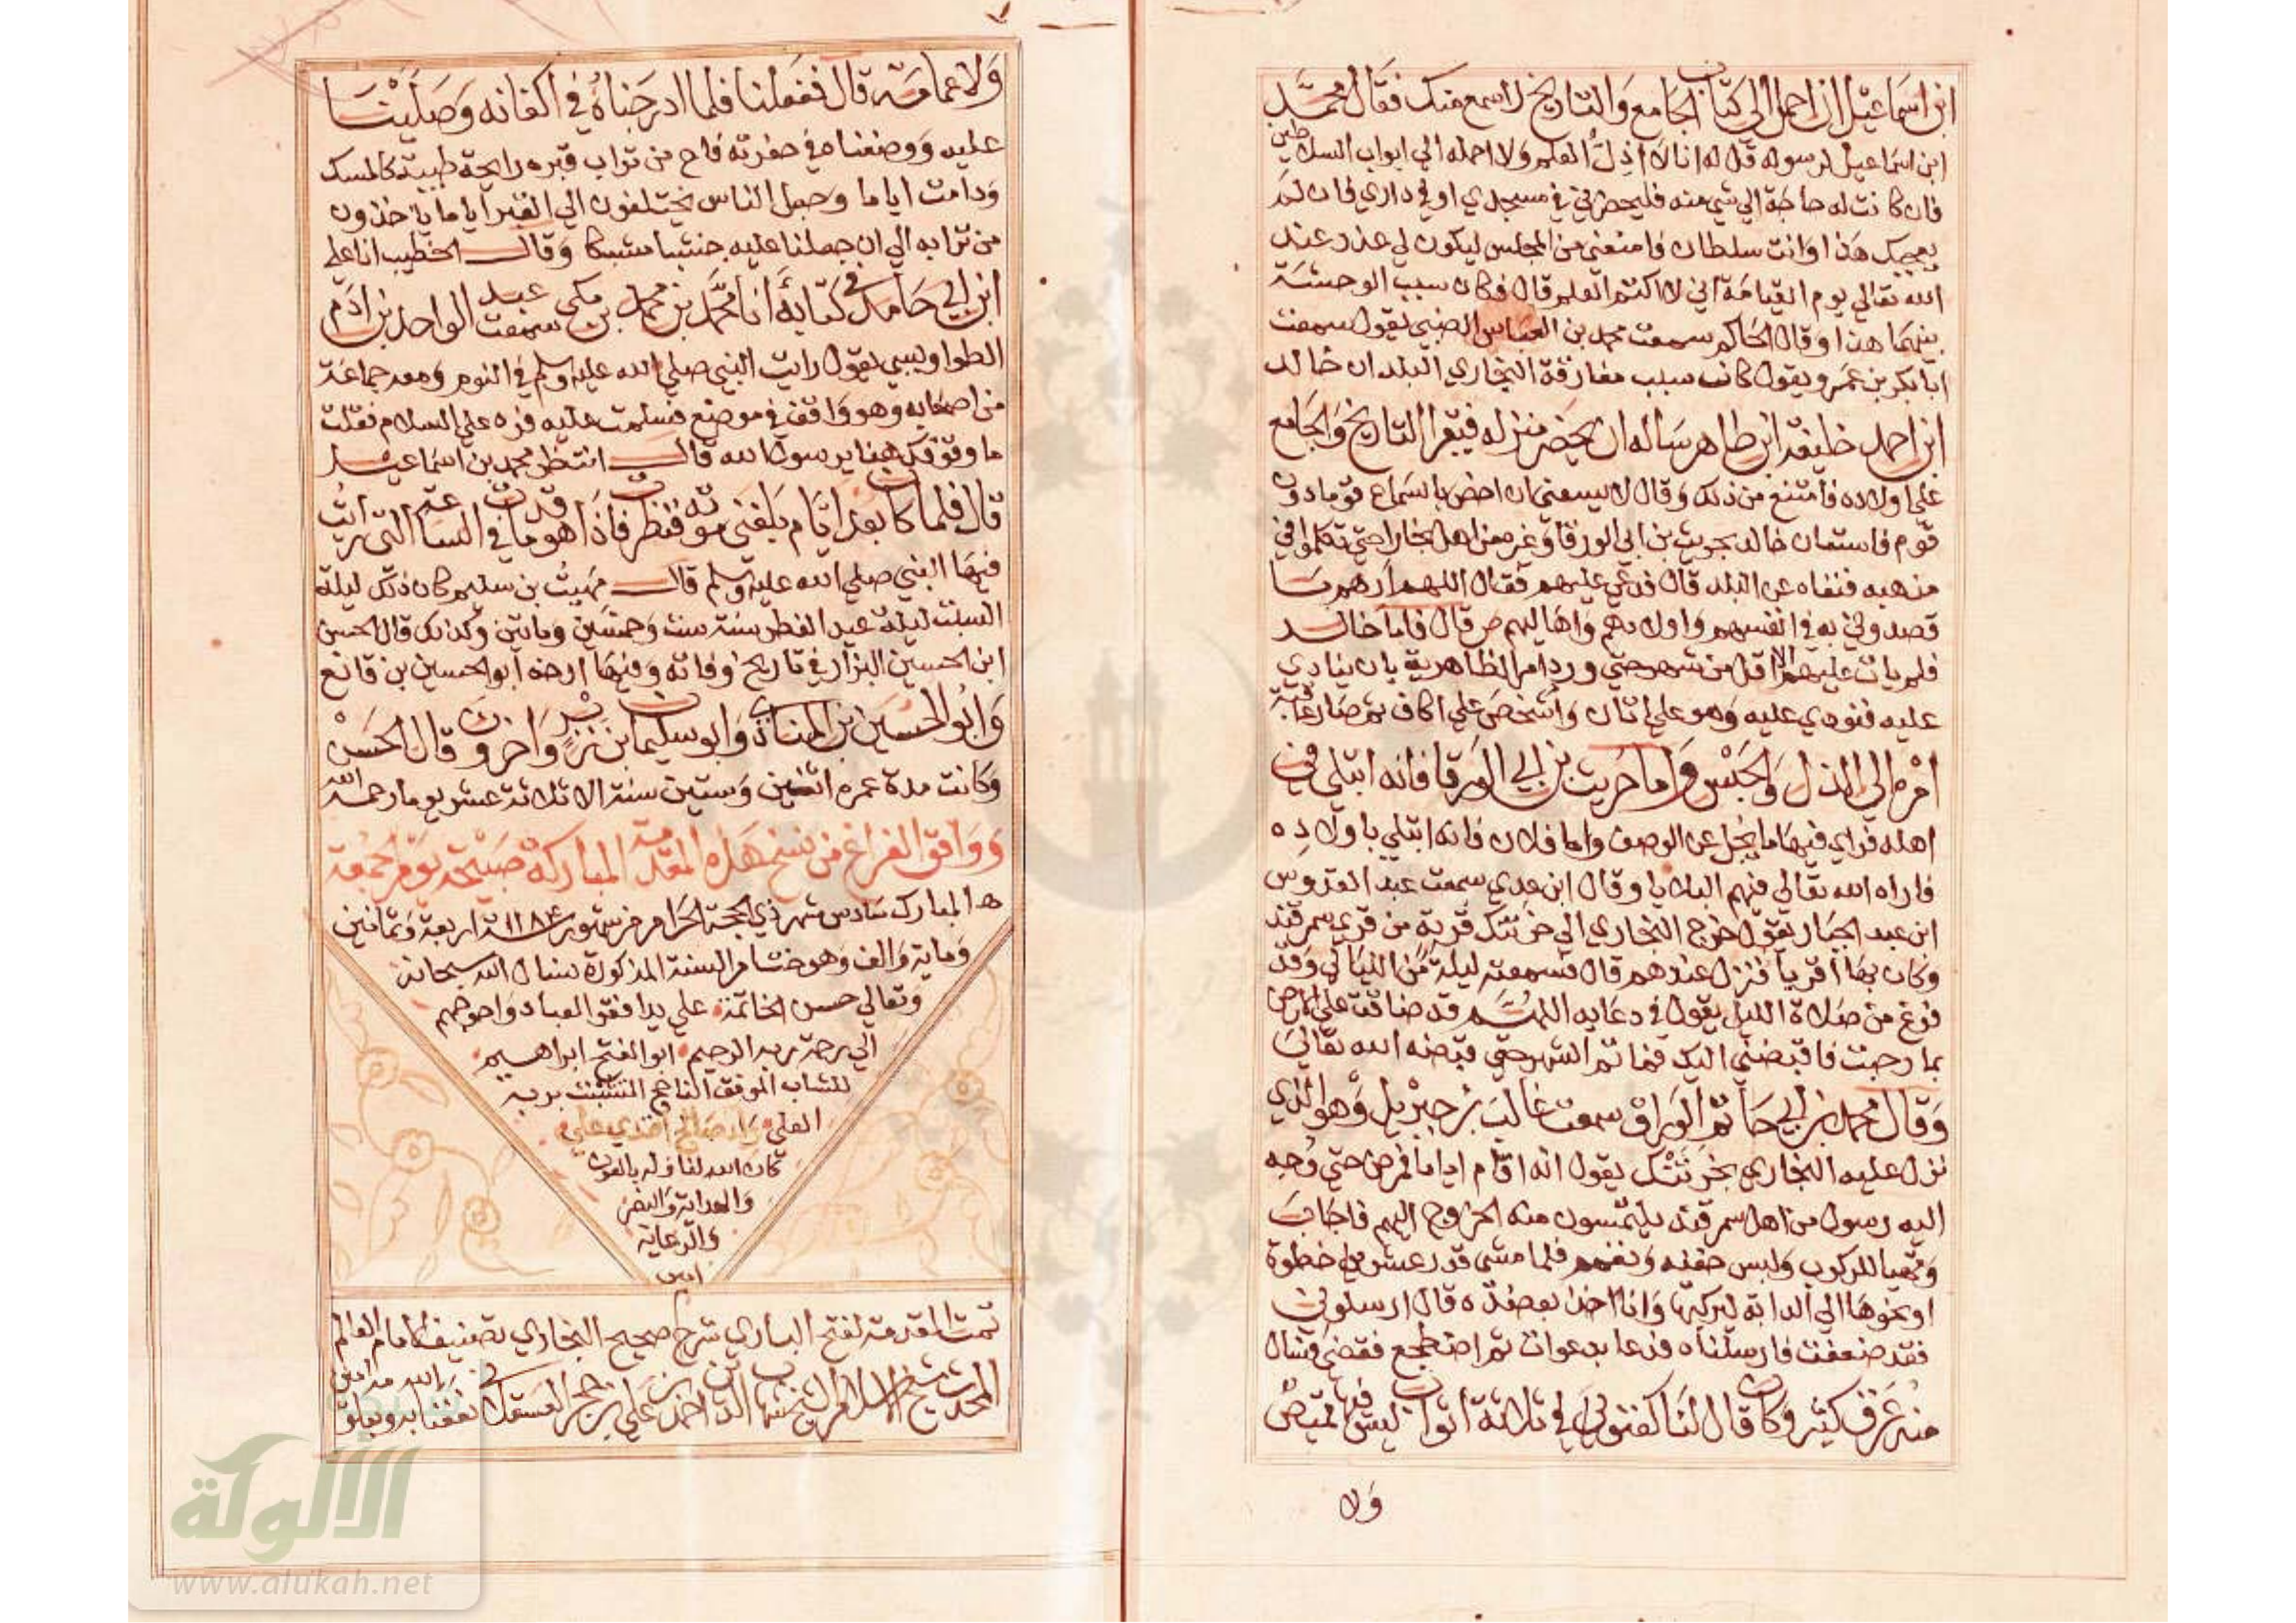 ابن اسماعيل ان احمل الي كتاب الجامع والتاريخ لاسمع منك فقال محمد
ابن اسماعيل لرسوله قل له انا لا اذل العلم ولا احمله الي ابواب السلاطين
فان كانت له حاجة الي شي منه فليحضرني في مسجدي او في داري فان لم
يعجبك هذا وانت سلطان فامنعني من المجلس ليكون لي عذر عند
الله تعالي يوم القيامة اني لا اكتم العلم قال فكان سبب الوحشة
بينهما هذا وقال الحاكم سمعت محمد بن العباس الضبي يقول سمعت
ابا بكر بن عمرو يقول كانت سبب مفارقة البخاري البلد ان خالد
ابن احمد خليفة ابن طاهر ساله ان يحضر منزله فيقرا التاريخ والجامع
علي اولاده فامتنع من ذلك وقال لا يسعني ان اخص بالسماع قوما دون
قوم فاستعان خالد بحريث بن ابي الورقا وغيره من اهل بخارا حتي تكلموا في
مذهبه فنفاه عن البلد قال فدعي عليهم فقال اللهم ارهم ما
قصدوني به في انفسهم واولادهم واهاليهم قال فاما خالد
فلم يات عليهم الا اقل من شهر حتي ورد امر الظاهرية بان ينادي
عليه فنودي عليه وهو علي اتان واشخص علي اكاف ثم صار عاقبة
امره الي الذل والحبس واما حريث بن ابي الورقا فانه ابتلي في
اهله فراي فيها ما يجل عن الوصف واما فلان فانه ابتلي باولاده
فاراه الله تعالي فيهم البلايا وقال ابن عدي سمعت عبد القدوس
ابن عبد الجبار يقول خرج البخاري الي خرتنك قرية من قري سمرقند
وكان بها اقربا فنزل عندهم قال فسمعته ليلة من الليالي وقد
فرغ من صلاة الليل يقول في دعايه اللهم قد ضاقت علي الارض
بما رحبت فاقبضني اليك فما تم الشهر حتي قبضه الله تعالي
وقال محمد بن ابي حاتم الوراق سمعت غالب بن جبريل وهو الذي
نزل عليه البخاري بخرتنك يقول انه اقام اياما فمرض حتي وجه
اليه رسول من اهل سمرقند يلتمسون منه الخروج اليهم فاجاب
وتهيا للركوب ولبس خفيه وتعمم فلما مشي قدر عشرين خطوة
او نحوها الي الدابة ليركبها وانا اخذ بعضده قال ارسلوني
فقد ضعفت فارسلناه فدعا بدعوات ثم اضطجع فقضي فسال
منه عرق كثير وكان قال لنا كفنوني في ثلاثة اثواب ليس فيها قميص
ولا
ولا عمامة قال ففعلنا فلما ادرجناه في اكفانه وصلينا
عليه ووضعناه في حفرته فاح من تراب قبره رايحة طيبة كالمسك
ودامت اياما وجعل الناس يختلفون الي القبر اياما ياخذون
من ترابه الي ان جعلنا عليه خشبا مشبكا وقال الخطيب انا علي
ابن ابي حامد في كتابه انا محمد بن محمد بن مكي سمعت عبد الواحد بن ادم
الطواويسي يقول رايت النبي صلي الله عليه وسلم في النوم ومعه جماعة
من اصحابه وهو واقف في موضع فسلمت عليه فرد علي السلام فقلت
ما وقوفك هنا يرسول الله قال انتظر محمد بن اسماعيل
قال فلما كان بعد ايام بلغني موته فنظرت فاذا هو مات في الساعة التي رايت
فيها النبي صلي الله عليه وسلم قال مهيب بن سليم كان ذلك ليلة
السبت ليلة عيد الفطر سنة ست وخمسين ومايتين وكذلك قال الحسن
ابن الحسين البزار في تاريخ وفاته وفيها ارخه ابو الحسين بن قانع
وابو الحسين بن المنادي وابو سليمان بن زبر واخرون قال الحسن
وكانت مدة عمره اثنين وستين سنة الا ثلاثة عشر يوما رحمه الله
ووافق الفراغ من نسخ هذه المقدمة المباركة صبيحة يوم الجمعة
المبارك سادس شهر ذي الحجة الحرام من شهور سنة ١١٨٤ اربعة وثمانين
وماية والف وهو ختام السنة المذكورة نسال الله سبحانه
وتعالي حسن الخاتمة علي يد افقر العباد واحوجهم
الي رحمة ربه الرحيم ابو الفتح ابراهيم
للشاب الموفق الناجح المتشبث بربه
العلي افندي علي
كان الله لنا وله بالعون
والهداية والنصر
والرعاية
امين
تمت المقدمة لفتح الباري شرح صحيح البخاري تصنيف الامام العالم
المحدث شيخ الاسلام الشيخ شهاب الدين احمد بن علي بن حجر العسقلاني نفعنا الله به وبعلومه امين
الألوكة
www.alukah.net